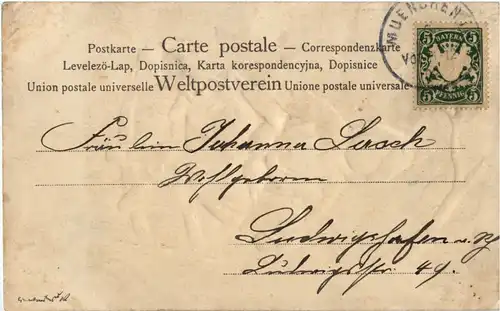 MUENCHEN
BAYERN
5 5
5 PFENNIG 5
Postkarte – Carte postale – Correspondenzkarte
Levelezö-Lap, Dopisnica, Karta korespondencyjna, Dopisnice
Union postale universelle Weltpostverein Unione postale universale
Fräulein Johanna Lasch
Wohlgeboren
Ludwigshafen a. R
Ludwigstr 49.